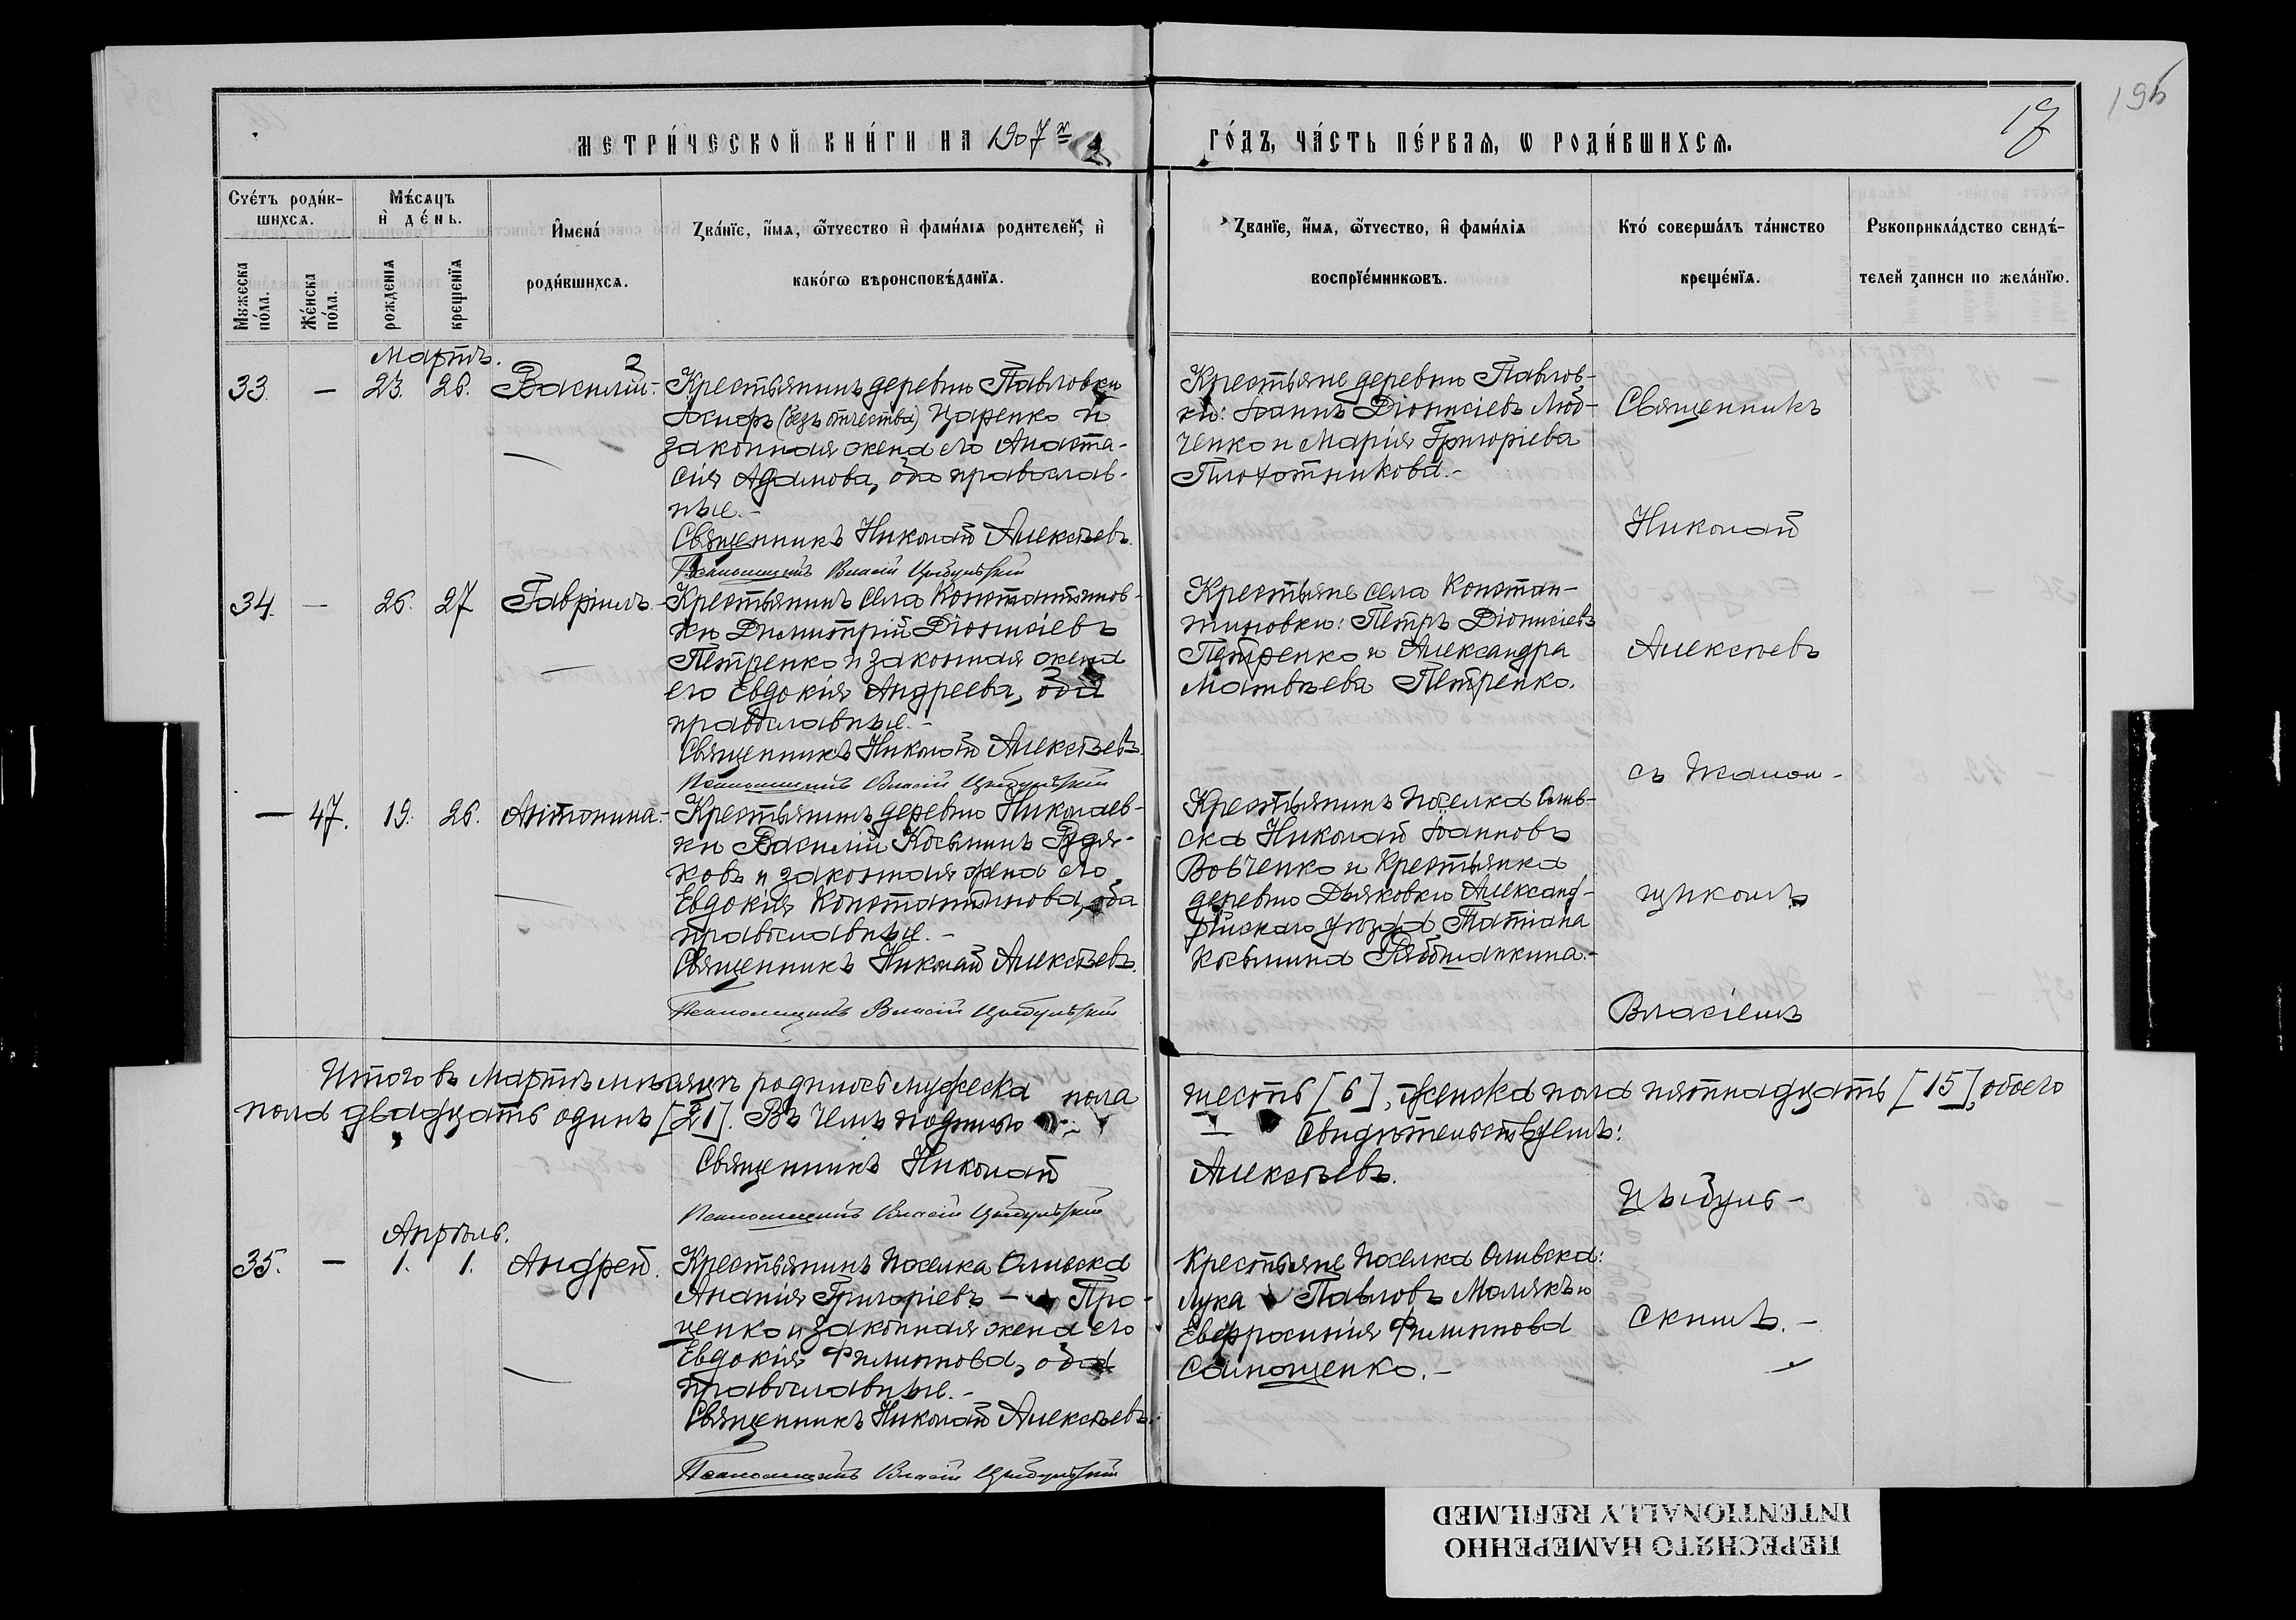 МЕТРИ́ЧЕСКОЙ КНИ́ГИ НА 1907 й
ГО́ДЪ, ЧА́СТЬ ПЕ́РВАѦ, Ѡ РОДИ́ВШИХСѦ.
17
196
Сче́тъ роди́в-
шихсѧ.
Мѣ́сѧцъ
и҆ де́нь.
И҆мена́
роди́вшихсѧ.
Зва́нїе, и҆́мѧ, ѻ҆́тчество и҆ фами́лїѧ родителей, и҆
како́гѡ вѣроисповѣ́данїѧ.
Зва́нїе, и҆́мѧ, ѻ҆́тчество, и҆ фами́лїѧ
воспрїе́мникѡвъ.
Кто́ соверша́лъ та́инство
креще́нїѧ.
Рꙋкоприкла́дство свидѣ́-
телей записи по жела́нїю.
Мꙋжеска
по́ла.
Же́нска
по́ла.
рожденїѧ
крещенїѧ
Мартъ.
33. — 23. 26. Василій. — Крестьянинъ деревни Павловки
Іосифъ (безъ отчества) Царенко и
законная жена его Анаста-
сія Адамова, оба православ-
ные. —
Священникъ Николай Алексѣевъ.
Псаломщикъ Власій Цыбульскій
Крестьяне деревни Павлов-
ки: Іоаннъ Діонисіевъ Люб-
ченко и Марія Григоріева
Плохотникова. —
34. — 26. 27 Гавріилъ. — Крестьянинъ села Константинов-
ки Димитрій Діонисіевъ
Петренко и законная жена
его Евдокія Андреева, оба
православные. —
Священникъ Николай Алексѣевъ.
Псаломщикъ Власій Цыбульскій
Крестьяне села Констан-
тиновки: Петръ Діонисіевъ
Петренко и Александра
Матвѣева Петренко.
— 47. 19. 26. Антонина. — Крестьянинъ деревни Николаев-
ки Василій Косьминъ Рудя-
ковъ и законная жена его
Евдокія Константинова, оба
православные. —
Священникъ Николай Алексѣевъ.
Псаломщикъ Власій Цыбульскій
Крестьянинъ поселка Ольв-
ска Николай Іоанновъ
Вовченко и Крестьянка
деревни Дьяковки Александ-
рійскаго уѣзда Татіана
Косьмина Рябошапкина. —
Священникъ
Николай
Алексѣевъ
съ Псалом-
щикомъ
Власіемъ
Цыбуль-
скимъ. —
Итого въ Мартѣ мѣсяцѣ родилось мужеска пола шесть [6], женска пола пятнадцать [15], обоего
пола двадцать одинъ [21]. Въ чемъ подписью — свидѣтельствуемъ:
Священникъ Николай Алексѣевъ.
Псаломщикъ Власій Цыбульскій
Апрѣль.
35. — 1. 1. Андрей. Крестьянинъ поселка Ольвска
Ананія Григоріевъ — Про-
ценко и законная жена его
Евдокія Филиппова, оба
православные. —
Священникъ Николай Алексѣевъ.
Псаломщикъ Власій Цыбульскій
Крестьяне поселка Ольвска:
Лука Павловъ Малякъ и
Евфросинія Филиппова
Самощенко. —
ПЕРЕСНЯТО НАМЕРЕННО
INTENTIONALLY REFILMED